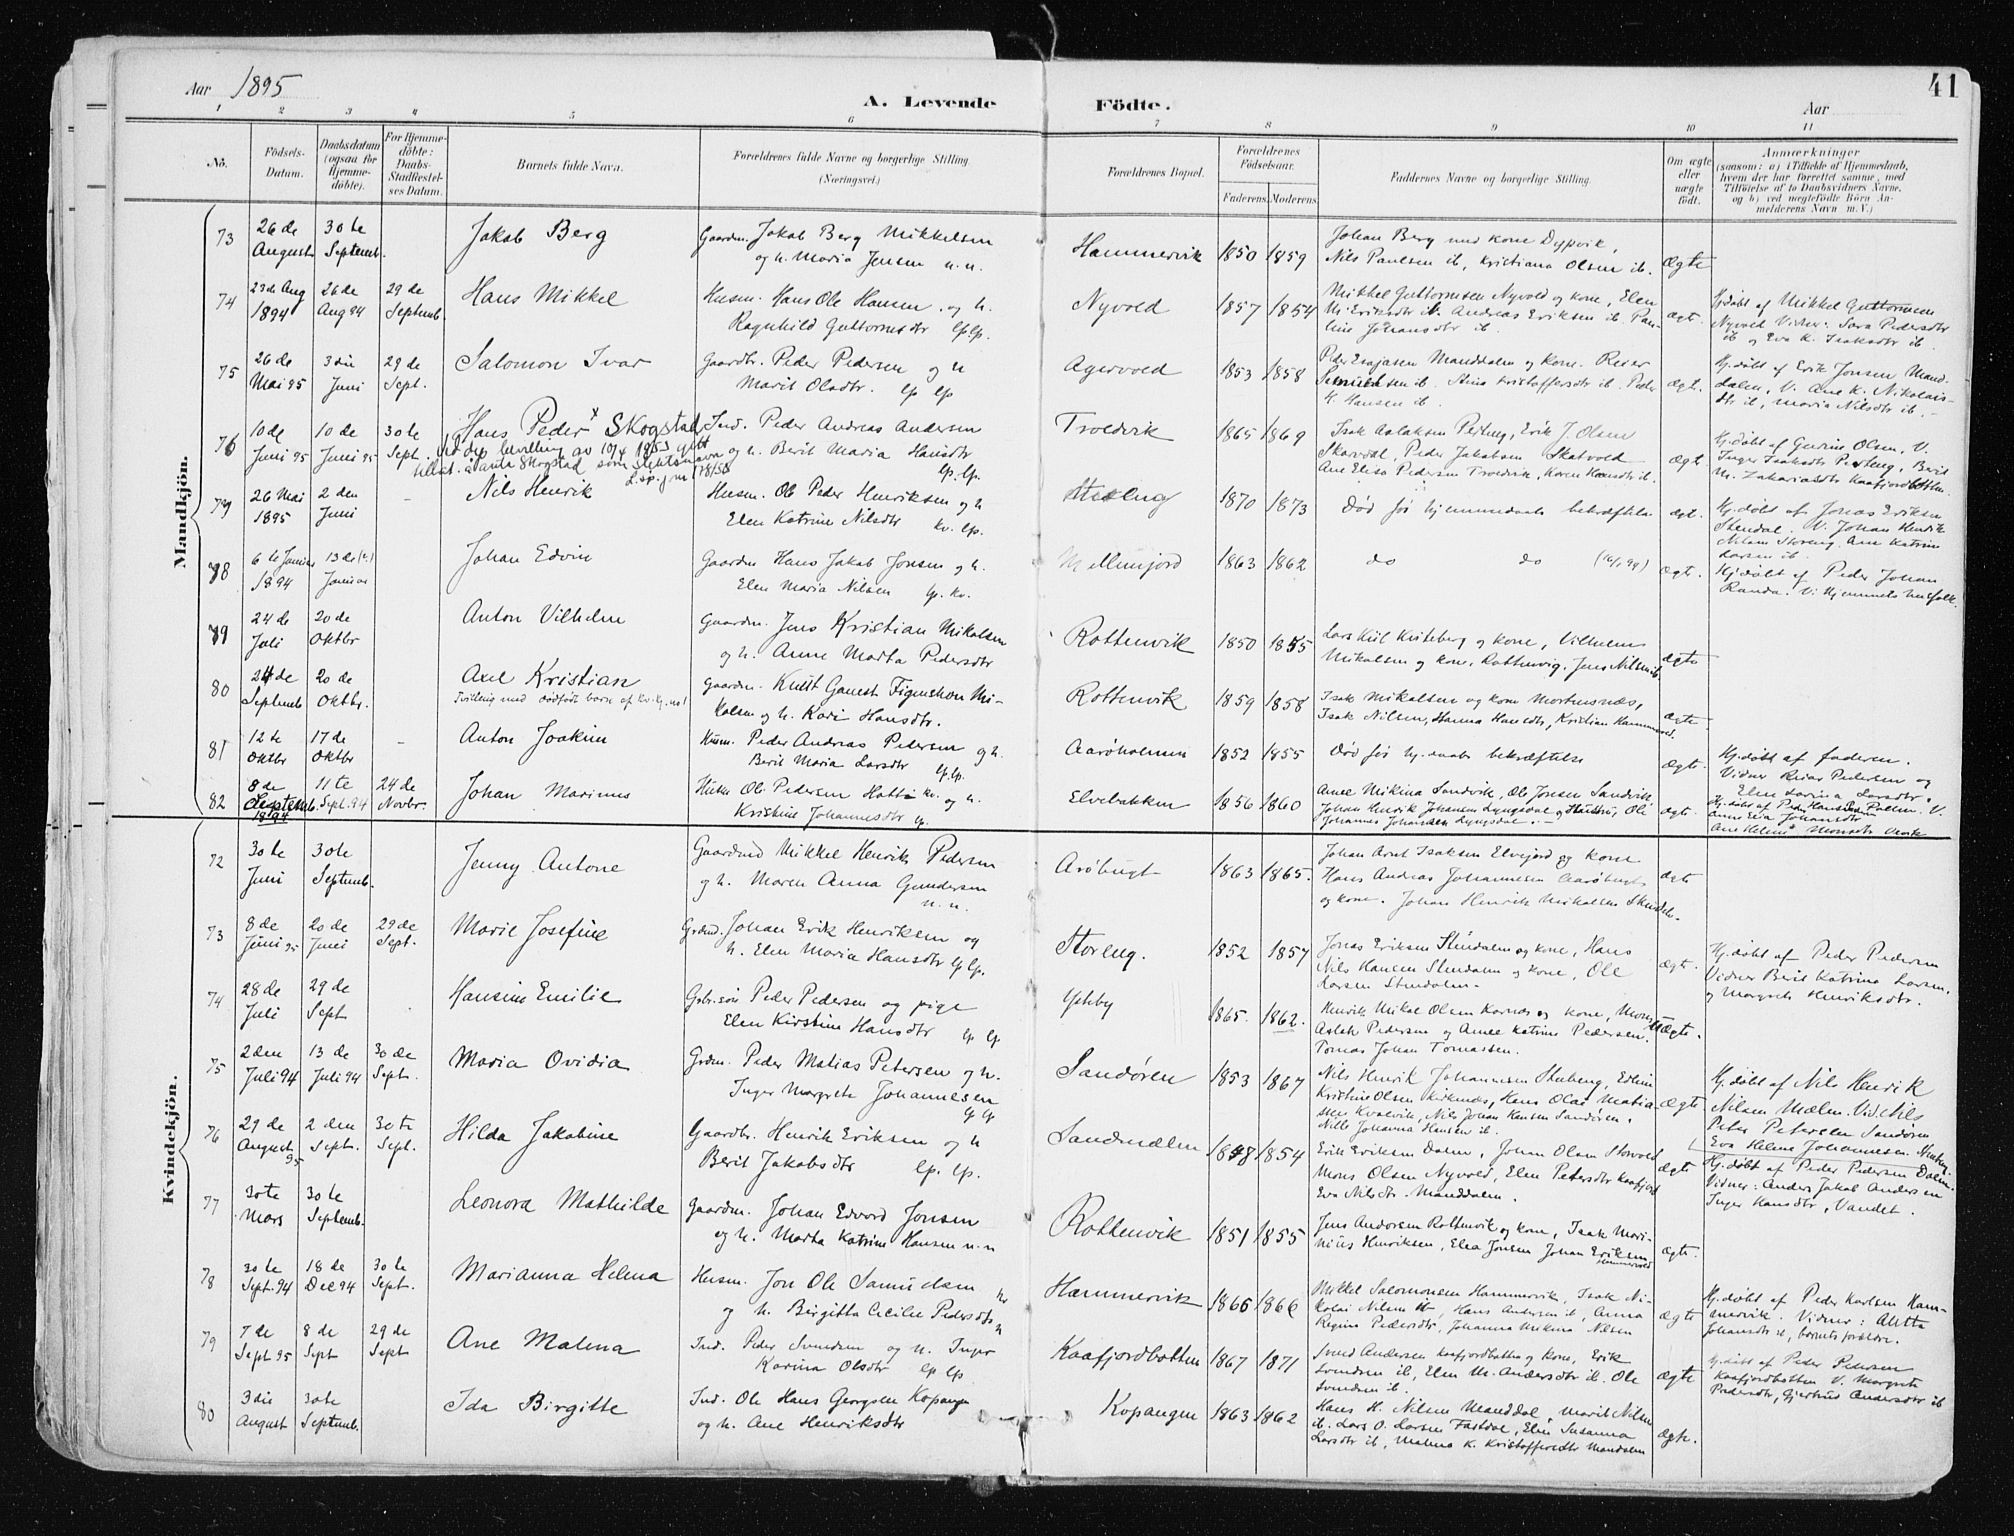 Aar 1895
A. Levende Födte.
Aar
41
1 2 3 4 5 6 7 8 9 10 11
No.
Födsels-Datum.
Daabsdatum (ogsaa for Hjemme-döbte).
For Hjemme-döbte: Daabs-Stadfæstel-ses Datum.
Barnets fulde Navn.
Forældrenes fulde Navne og borgerlige Stilling (Næringsvei.)
Forældrenes Bopæl.
Forældrenes Födselsaar.
Faderens. Moderens.
Faddernes Navne og borgerlige Stilling.
Om ægte eller uægte födt.
Anmærkninger
(saasom: a) i Tilfælde af Hjemmedaab, hvem der har forrettet samme, med Tilföielse af to Daabsvidners Navne, og b) ved uægtefödte Börn An-melderens Navn m. V.)
Mandkjön.
73 26de August 30te Septemb. Jakob Berg Gaardm. Jakob Berg Mikkelsen og h. Maria Jensen n.n. Hammervik 1850 1859 Johan Berg med kone Dypvik, Nils Paulsen ib, Kristiana Olsen ib. ægte
74 23de Aug 1894 26de Aug 94 29de Septemb. Hans Mikkel Husm. Hans Ole Hansen og h. Ragnhild Guttormsdtr lp lp. Nyvold 1857 1854 Mikkel Guttormsen Nyvold og kone, Elen M. Eriksdtr ib. Andreas Eriksen ib. Johansdtr ib. ægt. Hj.döbt af Mikkel Guttormsen Nyvold Vidner: Sara Pedersdtr ib og Eva K. Isaksdtr ib.
75 26de Mai 95 3die Juni 29de Sept. Salomon Ivar Gaardbr. Peder Pedersen og h Marit Olsdtr. lp lp Agervold 1853 1858 Manddalen og kone. Reier Samuelsen ib. Stina Kristoffersdtr ib. Peder H. Hansen ib. ægt. Hj.döbt af Erik Jonsen Mand-dalen, V. Ane K. Nikolais-dtr ib, Maria Nilsdtr ib.
76 10de Juni 95 10de Juni 95 30te Sept. Hans Peder x Skogstad Ind. Peder Andreas Andersen og h. Berit Maria Hansdtr lp. lp. Troldvik 1865 1869 Isak Aslaksen Erik J. Olsen Skardal, Peder Jakobsen Skatvold Ane Elisa Pedersen Troldvik, Karen Hansdtr ib. ægt.
Ved dep. bevilling av 10/4 1953 gitt tillat. å anta Skogstad som slektsnavn
77 26 Mai 1895 2den Juni - Nils Henrik Husm. Ole Peder Henriksen og h Elen Katrine Nilsdtr kv. lp. Storeng 1870 1873 Död för hjemmedaabs bekræftelse ægt. Hj.döbt af Jonas Eriksen Stendal. V. Johan Henrik Nilsen Storeng. Ane Katrine Larsen ib.
78 6te Januar 1894 13de Januar Johan Edvin Gaardm Hans Jakob Jonsen og h. Elen Maria Nilsen lp. kv. 1863 1862 do do ægte. Hj.döbt af Peder Johan Randa. V. Hjemmets husfolk.
79 24de Juli 20de Oktbr Anton Vilhelm Gaardm. Jens Kristian Mikalsen og h. Anne Marta Pedersdtr Rottenvik 1850 1855 Lars Kiil Kviteberg og kone, Vilhelm Mikalsen og kone, Rottenvig, Jens Nilsen ib. ægte
80 24de Septemb 20de Oktbr. Axel Kristian Tvilling med dödfödt barn af kv.kj. no 1 Gaardm. Knut Ganest Figenskou Mi-kalsen og h. Kari Hansdtr. Rottenvik 1859 1858 Isak Mikalsen og kone Mortensnæs, Isak Nilsen, Hanna Hansdtr, Kristian Hammervold. ægte
81 12te Oktbr 17de Oktbr - Anton Joakim Husm. Peder Andreas Pedersen og h. Berit Maria Larsdtr lp.lp. Aaröholmen 1852 1855 Död för hj.daabs bekræftelse ægte. Hj.döbt af faderen. Vidner Reiar Pedersen og Elen Larsdtr.
82 8de Septemb. 1894 11te Sept. 94 24de Novbr. Johan Marinus Husm Ole Pedersen kv. og h. Kristine Johannesdtr lp. Elvebakken 1856 1860 Anne Mikina Sandvik, Ole Jonsen Sandvik Johan Henrik Johansen Lyngsdal og Ole Johannes Johansen Lyngsdal. ægte.
Kvindekjön.
72 30te Juni 30te Septemb. Jenny Antone Gaardmd Mikkel Henrik Pedersen og h. Maren Anna Gundersen n.n. Aröbugt 1863 1865. Johan Arnt Isaksen Elvejord og kone Hans Andreas Johannesen Aaröbugt og kone. Johan Henrik Mikalsen ægte
73 8de Juni 95 20de Juni 29de Sept. Marie Josefine Grdmd. Johan Erik Henriksen og h. Elen Maria Hansdtr lp lp. Storeng. 1852 1857 Jonas Eriksen Stendalen og kone, Hans Nils Hansen Stendalen og kone, Ole Larsen Stendalen. ægte. Hj.döbt af Peder Pedersen Vidner Berit Katrina Larsen, og Margrete Henriksdtr.
74 28de Juli 29de Sept Hansine Emilie Gbr.sön Peder Pedersen og pige Elen Kirstine Hansdtr lp lp 1865. 1862. Henrik Mikal Olsen Karnæs og kone, Mons Aslak Pedersen og Anne Katrine Pedersen. Tomas Johan Tomassen. uægte.
75 2den Juli 94 13de Juli 94 30de Sept. Maria Ovidia Grdm. Peder Matias Petersen og h. Inger Margrete Johannesen lp lp Sandören 1853 1867 Nils Henrik Johannesen Stubeng, Edlin Kristine Olsen Hans Olai Matia-sen Kvalvik, Nils Johan Hansen Sandören, Nille Johanna Hansen ib. ægte Hj.döbt af Nils Henrik Nilsen Mælen. Vid. Nils Peter Petersen Sandören Eva Helene Johannesen
76 29de August 95 2den Sept. 30te Sept. Hilda Jakobine Gaardbr. Henrik Eriksen og h Berit Jakobsdtr lp. lp. Sandmælen 1848 1854 Erik Eriksen Dalen, Johan Olsen Storvold Mons Olsen Nyvold, Elen Petersdtr Kaafjord Eva Nilsdtr Manddalen. ægte Hj.döbt af Peder Pedersen Dalen. Vidner: Anders Jakob Andersen Inger Hansdtr, Vandet.
77 30te Mars 30te Septemb. Leonora Mathilde Gaardm. Johan Edvard Jonsen og h. Marta Katrine Hansen n.n Rottenvik 1851 1855 Jens Andersen Rottenvik og kone, Isak Mari-nius Henriksen, Elea Jonsen Johan Eriksen Hammervold ægte.
78 30te Sept. 94 18de Dec 94 30te Sept. Marianna Helena Husm. Jon Ole Samuelsen og h. Birgitta Cecilie Pedersdtr Hammervik 1866 1866 Mikkel Salomonsen Hammervik, Isak Ni-kolai Nilsen ib, Hans Andersen ib, Anna Regina Pedersdtr, Johanna Mikina Nilsen ægte Hj.döbt af Peder Karlsen Ham-mervik. Vidner: Aletta Johansdtr ib, barnets forældre.
79 7de Sept 95 8de Sept 29de Sept Ane Malena Ind. Peder Svendsen og h. Inger Karina Olsdtr lp lp Kaafjordbotten 1867 1871 Svend Andersen Kaafjordbotten og kone, Erik Svendsen ib, Elen M. Andersdtr ib. Ole Svendsen ib. ægte Hj.döbt af Peder Pedersen Kaafjordbotten V. Margrete Pedersdtr, Gjertrud Andersdtr ib
80 3die August 30te Septemb. Ida Birgitte Ind. Ole Hans Georgsen Kopangen og h. Ane Henriksdtr Kopangen 1863 1862 Hans H. Nilsen Manddal, Marit Nilsen ib. Lars O. Larsen Fastdal, Elen Susanna Larsdtr ib, Malena K. Kristoffersdtr Mandalen ægte.